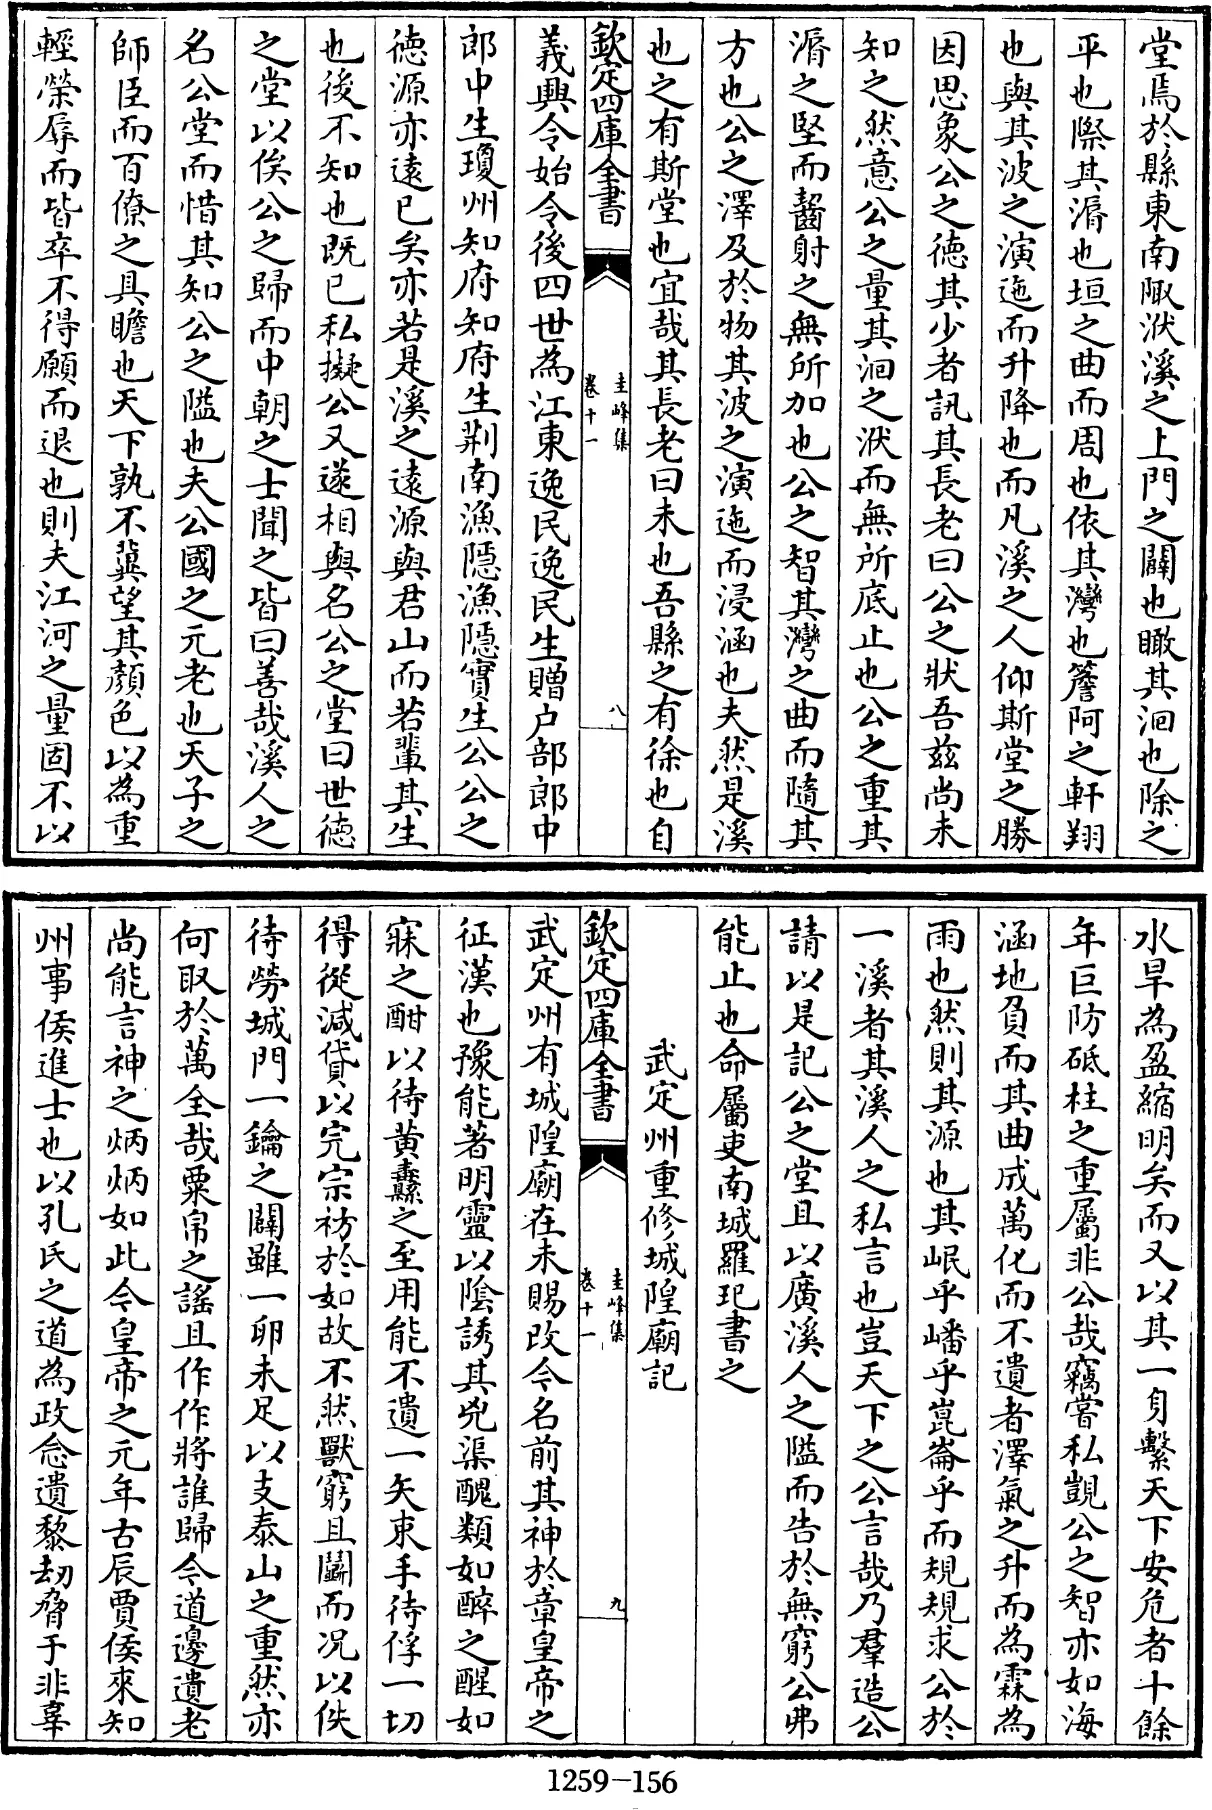 堂焉於縣東南陬洑溪之上門之闢也瞰其洄也除之
平也際其漘也垣之曲而周也依其灣也簷阿之軒翔
也與其波之演迤而升降也而凡溪之人仰斯堂之勝
因思象公之徳其少者訊其長老曰公之狀吾兹尚未
知之然意公之量其洄之洑而無所底止也公之重其
漘之堅而齧射之無所加也公之智其灣之曲而隨其
方也公之澤及於物其波之演迤而浸涵也夫然是溪
也之有斯堂也宜哉其長老曰未也吾縣之有徐也自
欽定四庫全書
圭峰集
卷十一
八
義興令始令後四世為江東逸民逸民生贈户部郎中
郎中生瓊州知府知府生荆南漁隠漁隠實生公公之
徳源亦遠已矣亦若是溪之遠源與君山而若輩其生
也後不知也既已私擬公又遂相與名公之堂曰世徳
之堂以俟公之歸而中朝之士聞之皆曰善哉溪人之
名公堂而惜其知公之隘也夫公國之元老也天子之
師臣而百僚之具瞻也天下孰不冀望其顔色以為重
輕榮辱而皆卒不得願而退也則夫江河之量固不以
水旱為盈縮明矣而又以其一身繫天下安危者十餘
年巨防砥柱之重屬非公哉竊嘗私覬公之智亦如海
涵地負而其曲成萬化而不遺者澤氣之升而為霖為
雨也然則其源也其岷乎嶓乎崑崙乎而規規求公於
一溪者其溪人之私言也豈天下之公言哉乃羣造公
請以是記公之堂且以廣溪人之隘而告於無窮公弗
能止也命屬吏南城羅玘書之
武定州重修城隍廟記
欽定四庫全書
圭峰集
卷十一
九
武定州有城隍廟在未賜改今名前其神於章皇帝之
征漢也豫能著明靈以陰誘其兇渠醜類如醉之醒如
寐之酣以待黄纛之至用能不遺一矢束手待俘一切
得從減貸以完宗祊於如故不然獸窮且鬬而况以佚
待勞城門一鑰之闢雖一卵未足以支泰山之重然亦
何取於萬全哉粟帛之謠且作作將誰歸今道邊遺老
尚能言神之炳炳如此今皇帝之元年古辰賈侯來知
州事侯進士也以孔氏之道為政念遺黎刼脅于非辜
1259-156